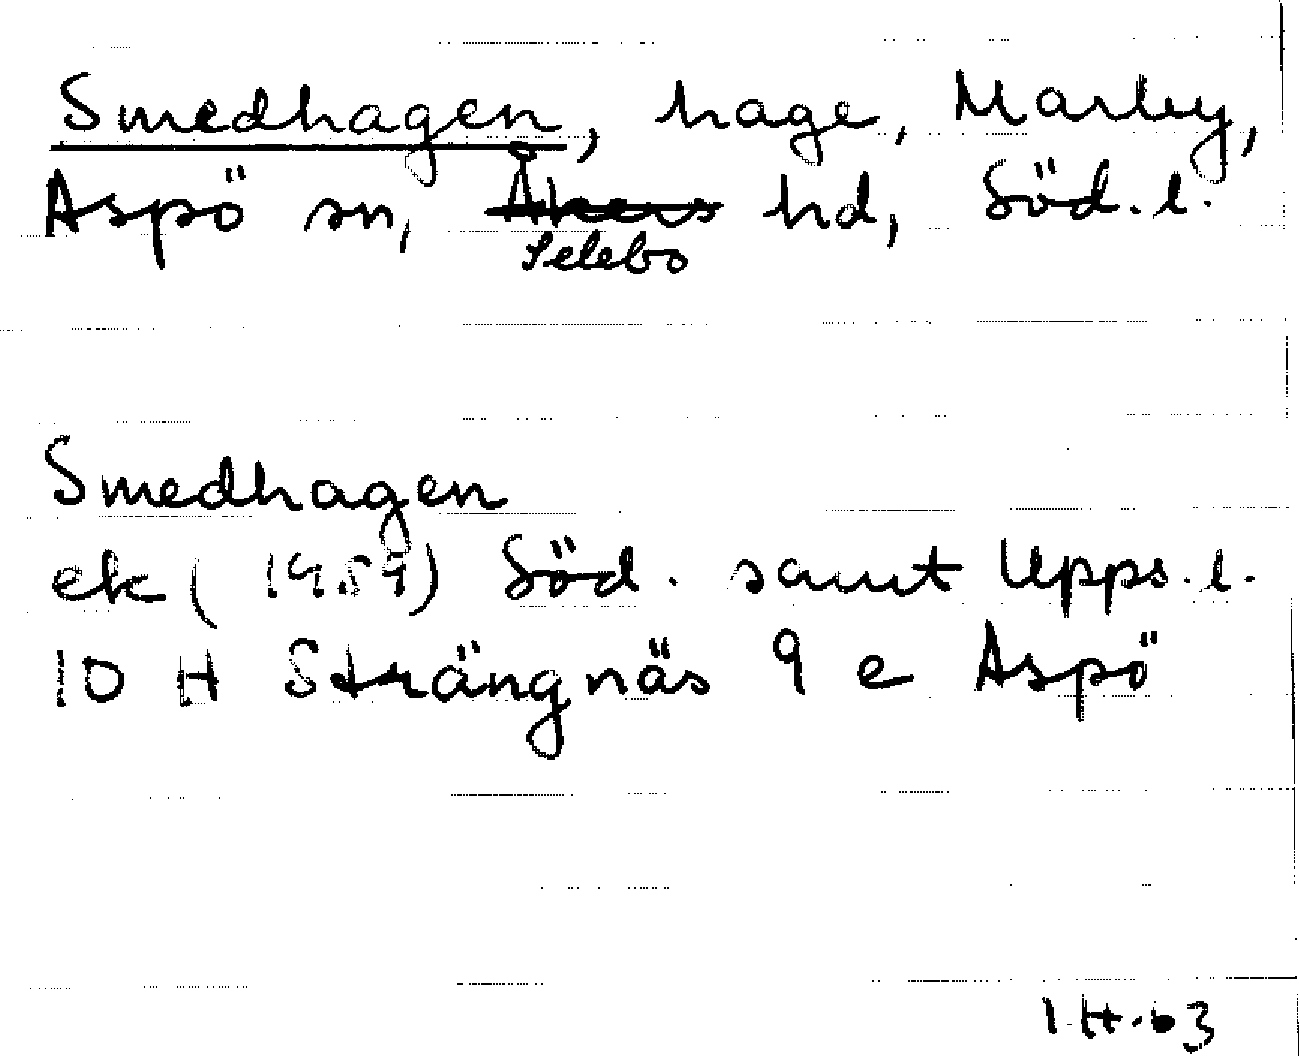 Smedhagen, hage, Marley,
Aspö sn, Åkers hd, Söd. l.
Selebo
Smedhagen
ek (1959) Söd. samt Upps. l.
10 H Strängnäs 9 e Aspö